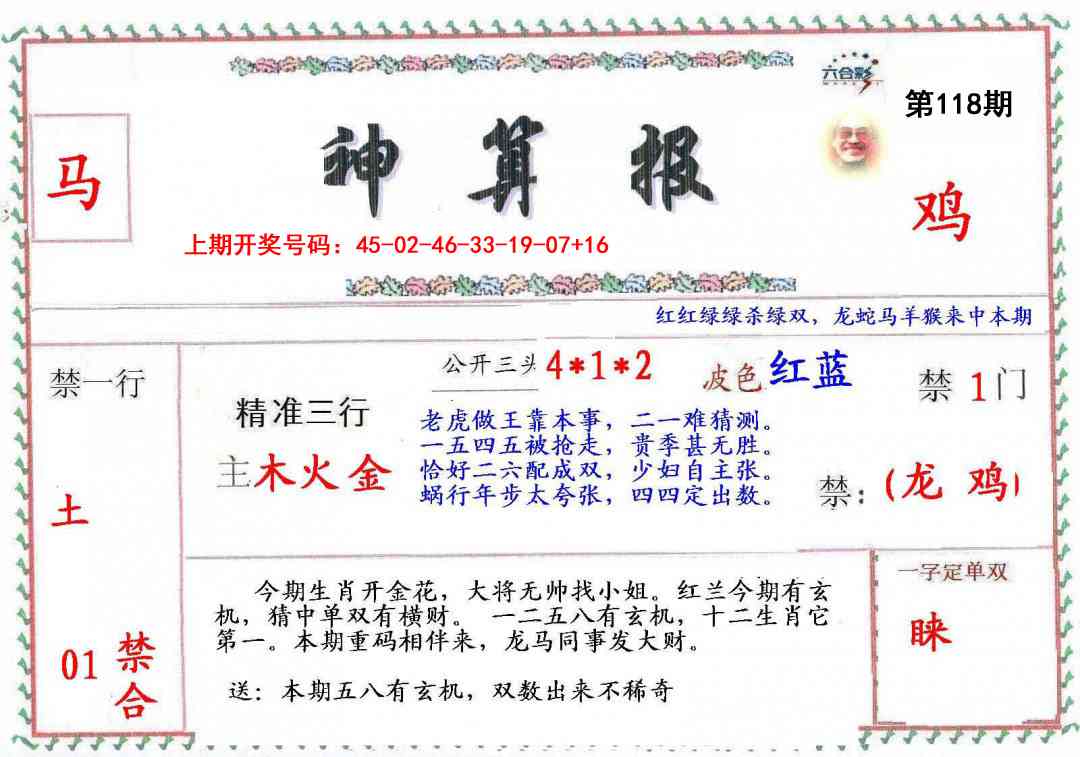 六合彩
第118期
马
神算报
鸡
上期开奖号码：45-02-46-33-19-07+16
红红绿绿杀绿双，龙蛇马羊猴来中本期
禁一行
土
01 禁合
精准三行
主木火金
公开三头 4*1*2
波色 红蓝
老虎做王靠本事，二一难猜测。
一五四五被抢走，贵季甚无胜。
恰好二六配成双，少妇自主张。
蜗行年步太夸张，四四定出数。
禁1门
禁：(龙 鸡)
今期生肖开金花，大将无帅找小姐。红兰今期有玄
机，猜中单双有横财。 一二五八有玄机，十二生肖它
第一。本期重码相伴来，龙马同事发大财。
送：本期五八有玄机，双数出来不稀奇
一字定单双
睐